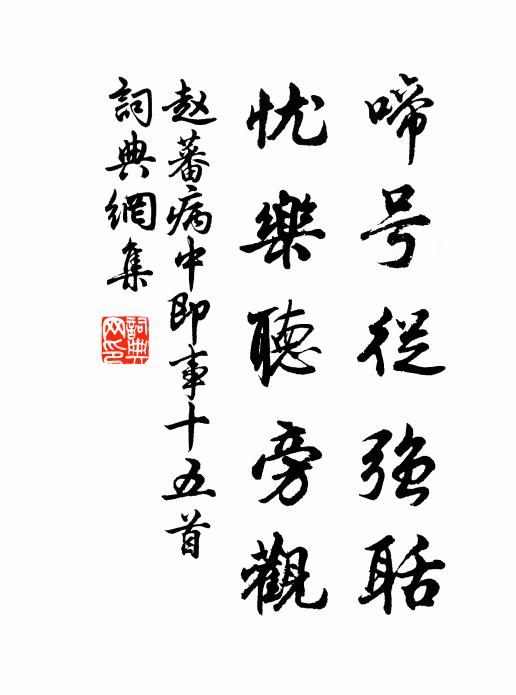 啼号從强聒
忧樂聽旁觀
赵蕃病中即事十五首
詞典網集
詞典网印